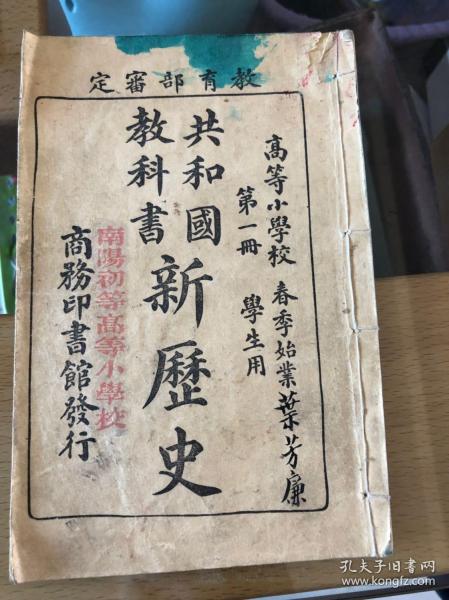 教育部審定
高等小學校 春季始業
葉芳廉
第一冊 學生用
共和國
教科書
新歷史
南陽初等高等小學校
商務印書館發行
孔夫子旧书网
www.kongfz.com